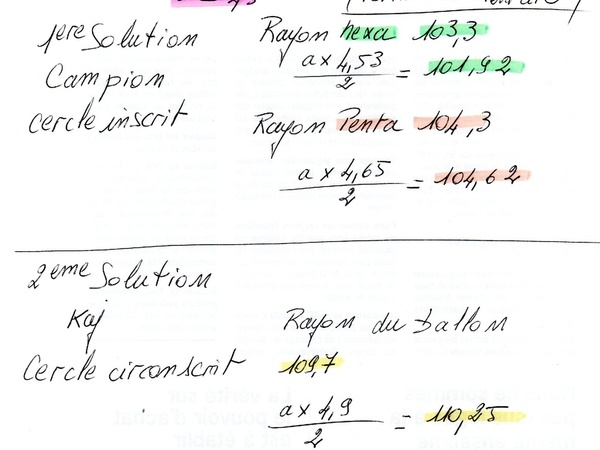 1ere Solution Rayon hexa 103,3
Campion a x 4,53 / 2 = 101,92
cercle inscrit Rayon Penta 104,3
a x 4,65 / 2 = 104,62
2eme Solution
Kaj Rayon du ballon
Cercle circonscrit 109,7
a x 4,9 / 2 = 110,25